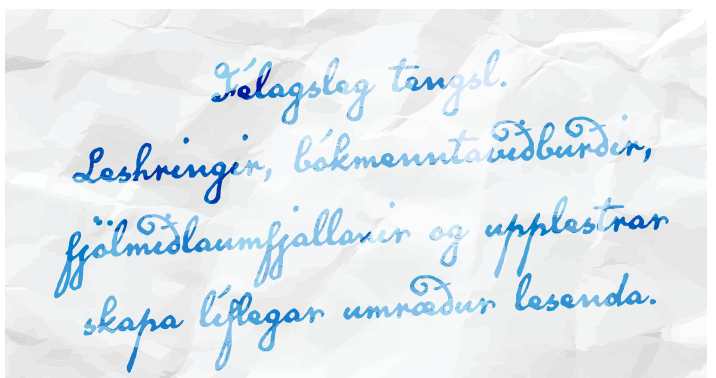 Félagsleg tengsl.
Leshringir, bókmenntaviðburðir,
fjölmiðlaumfjallanir og upplestrar
skapa líflegar umræður lesenda.